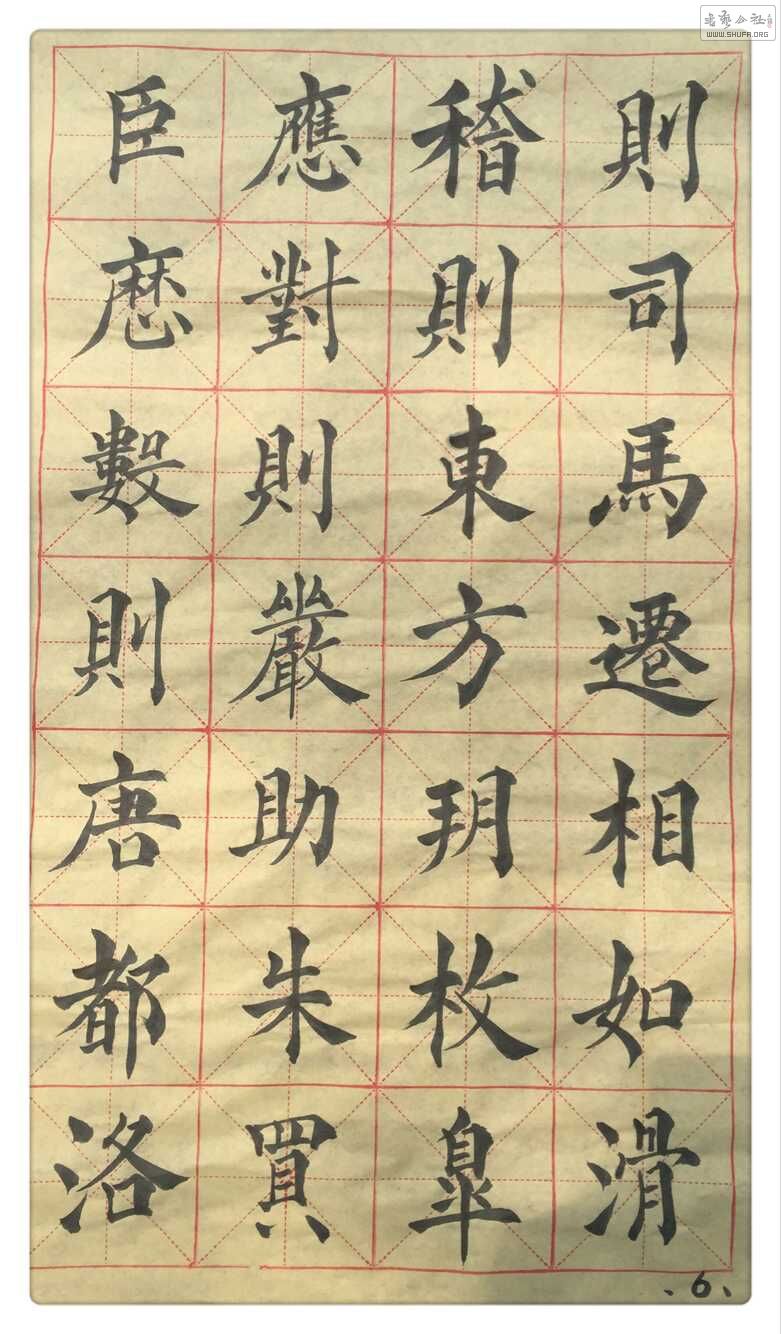 則司馬遷相如滑
稽則東方朔枚皋
應對則嚴助朱買
臣歷數則唐都洛
.6.
書藝公社
WWW.SHUFA.ORG